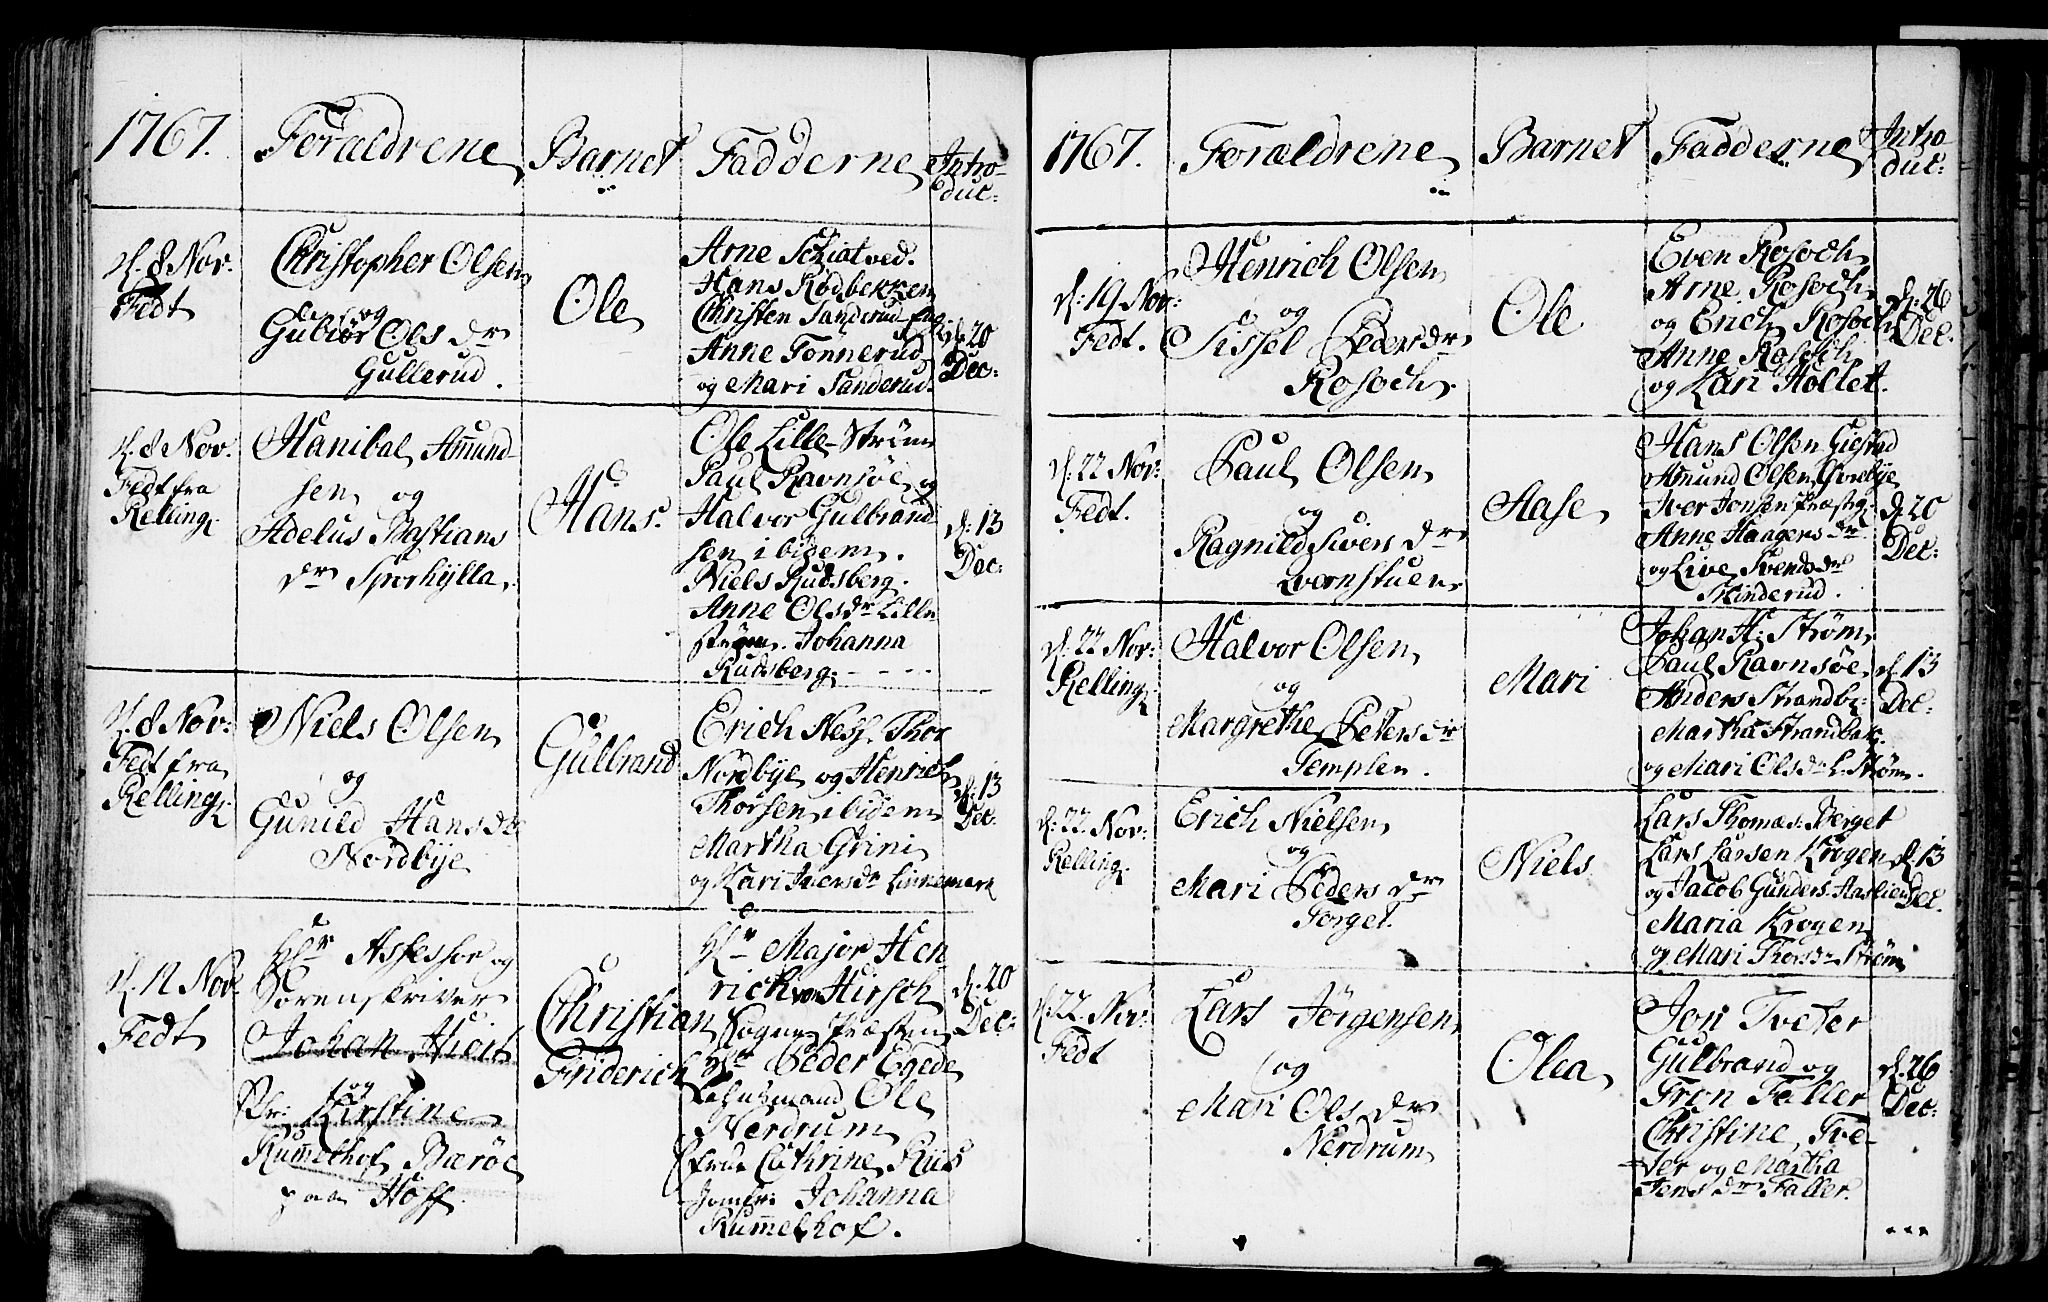 1767. Forældrene Barnet Fadderne Introduc:
d. 8 Nov:
Fedt
Christopher Olsen
og
Gubiør Ols dr
Gullerud.
Ole
Arne Schiatved.
Hans Rødbekken
Christen Sanderud-Eng
Anne Tønnerud
og Mari Sanderud.
d. 20
Dec:
d. 8 Nov.
Fedt fra
Relling.
Hanibal Amund-
sen og
Adelus Bastians
dr Sporhylla.
Hans.
Ole Lille-Strøm
Paul Ravnsøe og
Halvor Gulbrand-
sen ibidem.
Niels Rudsberg.
Anne Olsdr Lille
strøm. Johanna
Rudsberg.
d. 13
Dec:
d. 8 Nov:
Fedt fra
Relling.
Niels Olsen
og
Gunild Hansdr
Nordbye
Gulbrand
Erich Ness. Thor
Nordbye og Henrich
Thorsen ibidem
Martha Grini
og Kari Iversdr Linnemark
d. 13
Dec:
d. 12 Nov.
Fedt
Hr Assessor og
Sorenskriver
Johan Hiort
og
Fr: Kirstine
Rummelhof Bærøe
paa Hoff.
Christian
Friderich
Hr Major Hen-
rich von Hirsch
Sogne Præsten
Hr Peder Egede
Lehnsmand Ole
Nerdrum
Frue Cathrine Rus
Jomfr: Johanna
Rummelhof.
d. 20
Dec:
1767. Forældrene Barnet Fadderne Introduc:
d. 19 Nov:
Fedt.
Henrich Olsen
og
Sissel Pedersdr
Rosoch.
Ole
Even Rosoch
Arne Rosoch
og Erich Rosoch
Anne Rosoch
og Kari Hollet.
d. 26
Dec.
d. 22 Nov:
Fedt.
Paul Olsen
og
Ragnild Sivers dr
Qvernstuen
Aase
Hans Olsen Gigstad
Amund Olsen Østbye
Iver Jonsen Præsteg:
Anne Haagensdr
og Live Svendsdr
Skinderud.
d. 20
Dec:
d. 22 Nov:
Relling.
Halvor Olsen
og
Margrethe Petersdr
Templen.
Mari
Johan H: Strøm
Paul Ravnsøe
Anders Strandb:
Martha Strandbak.
og Mari Olsdr L. Strøm.
d. 13
Dec:
d. 22. Nov:
Relling.
Erich Nielsen
og
Mari Peders dr
Torget.
Niels
Lars Thomæs: Berget
Lars Larsen Krogen
og Jacob Gunders: Aaslien
Maria Krogen
og Mari Thorsdr Strøm
d. 13
Dec.
d. 22. Nov:
Fedt
Lars Jørgensen
og
Mari Ols dr
Nerdrum
Olea
Jon Tveter
Gulbrand og
Tron Faller
Christine Tve-
ter og Martha
Jens dr Faller.
d. 26
Dec: